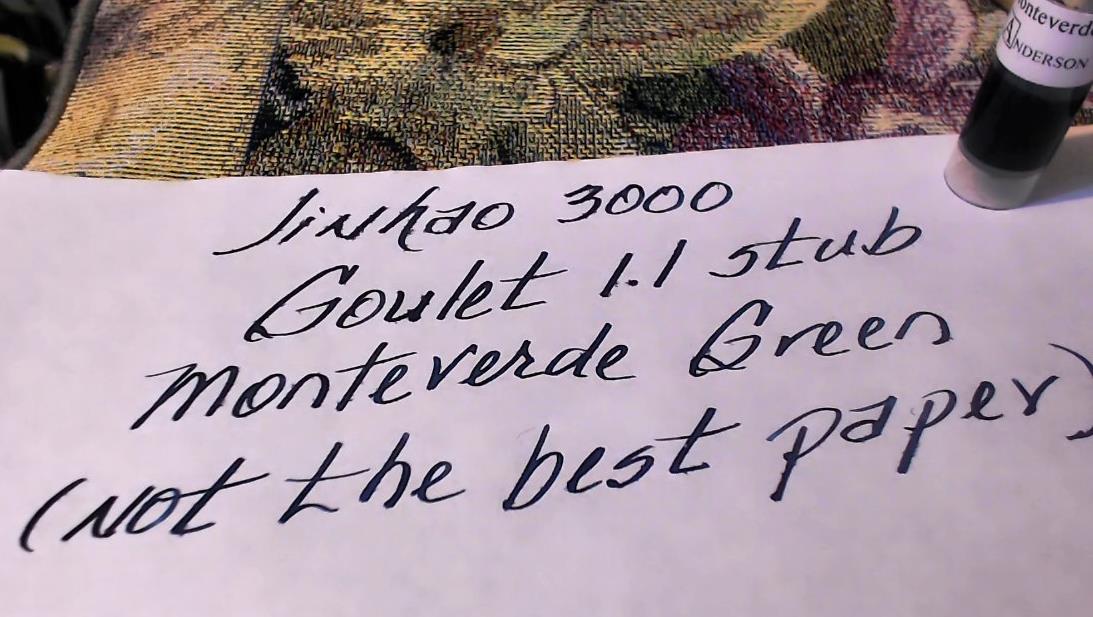 Jinhao 3000
Goulet 1.1 stub
Monteverde Green
(Not the best paper)
ANDERSON